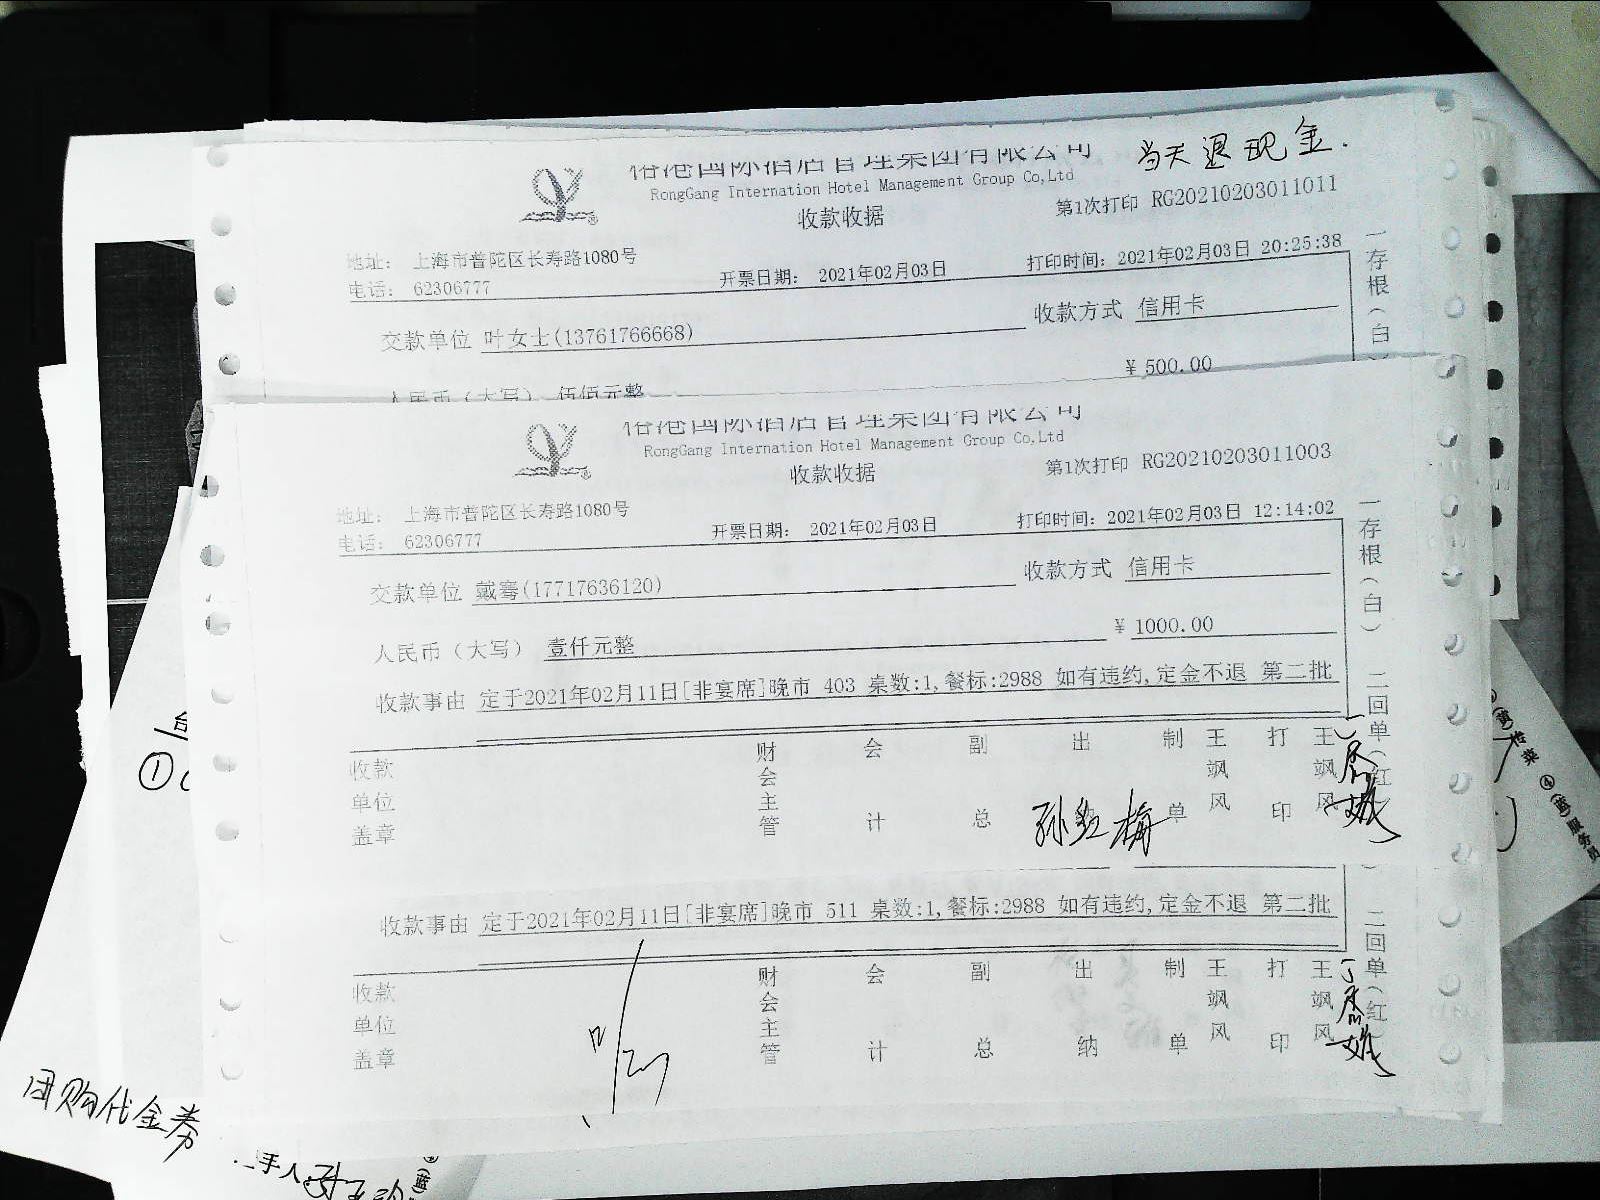 裕港国际酒店管理集团有限公司 当天退现金.
RongGang Internation Hotel Management Group Co,Ltd
收款收据 第1次打印 RG20210203011011
地址： 上海市普陀区长寿路1080号
电话： 62306777 开票日期： 2021年02月03日 打印时间：2021年02月03日 20:25:38
交款单位 叶女士(13761766668) 收款方式 信用卡
人民币（大写） 伍佰元整 ¥ 500.00
一存根（白
裕港国际酒店管理集团有限公司
RongGang Internation Hotel Management Group Co,Ltd
收款收据 第1次打印 RG20210203011003
地址： 上海市普陀区长寿路1080号
电话： 62306777 开票日期： 2021年02月03日 打印时间：2021年02月03日 12:14:02
交款单位 戴骞(17717636120) 收款方式 信用卡
人民币（大写） 壹仟元整 ¥ 1000.00
收款事由 定于2021年02月11日[非宴席]晚市 403 桌数:1,餐标:2988 如有违约,定金不退 第二批
收款单位盖章 财会主管 会计 副总 出 孙红梅 制单 王飒风 打印 王飒风
一存根（白） 二回单（红
收款事由 定于2021年02月11日[非宴席]晚市 511 桌数:1,餐标:2988 如有违约,定金不退 第二批
收款单位盖章 财会主管 会计 副总 出纳 制单 王飒风 打印 王飒风
二回单（红）
①
④(蓝)服务员
团购代金券
手人
(蓝)